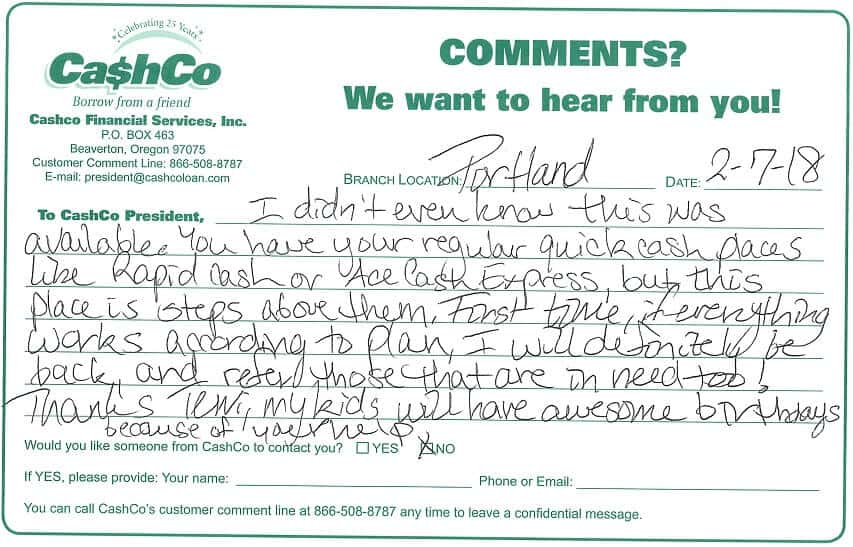 Celebrating 25 Years
Ca$hCo
Borrow from a friend
Cashco Financial Services, Inc.
P.O. BOX 463
Beaverton, Oregon 97075
Customer Comment Line: 866-508-8787
E-mail: president@cashcoloan.com
COMMENTS?
We want to hear from you!
BRANCH LOCATION: Portland DATE: 2-7-18
To CashCo President, I didn't even know this was
available. You have your regular quick cash places
like Rapid Cash or Ace Cash Express, but this
place is steps above them. First time, if everything
works according to plan, I will definitely be
back, and refer those that are in need too!
Thanks Terri, my kids will have awesome birthdays
because of your help
Would you like someone from CashCo to contact you? YES NO
If YES, please provide: Your name: Phone or Email:
You can call CashCo's customer comment line at 866-508-8787 any time to leave a confidential message.